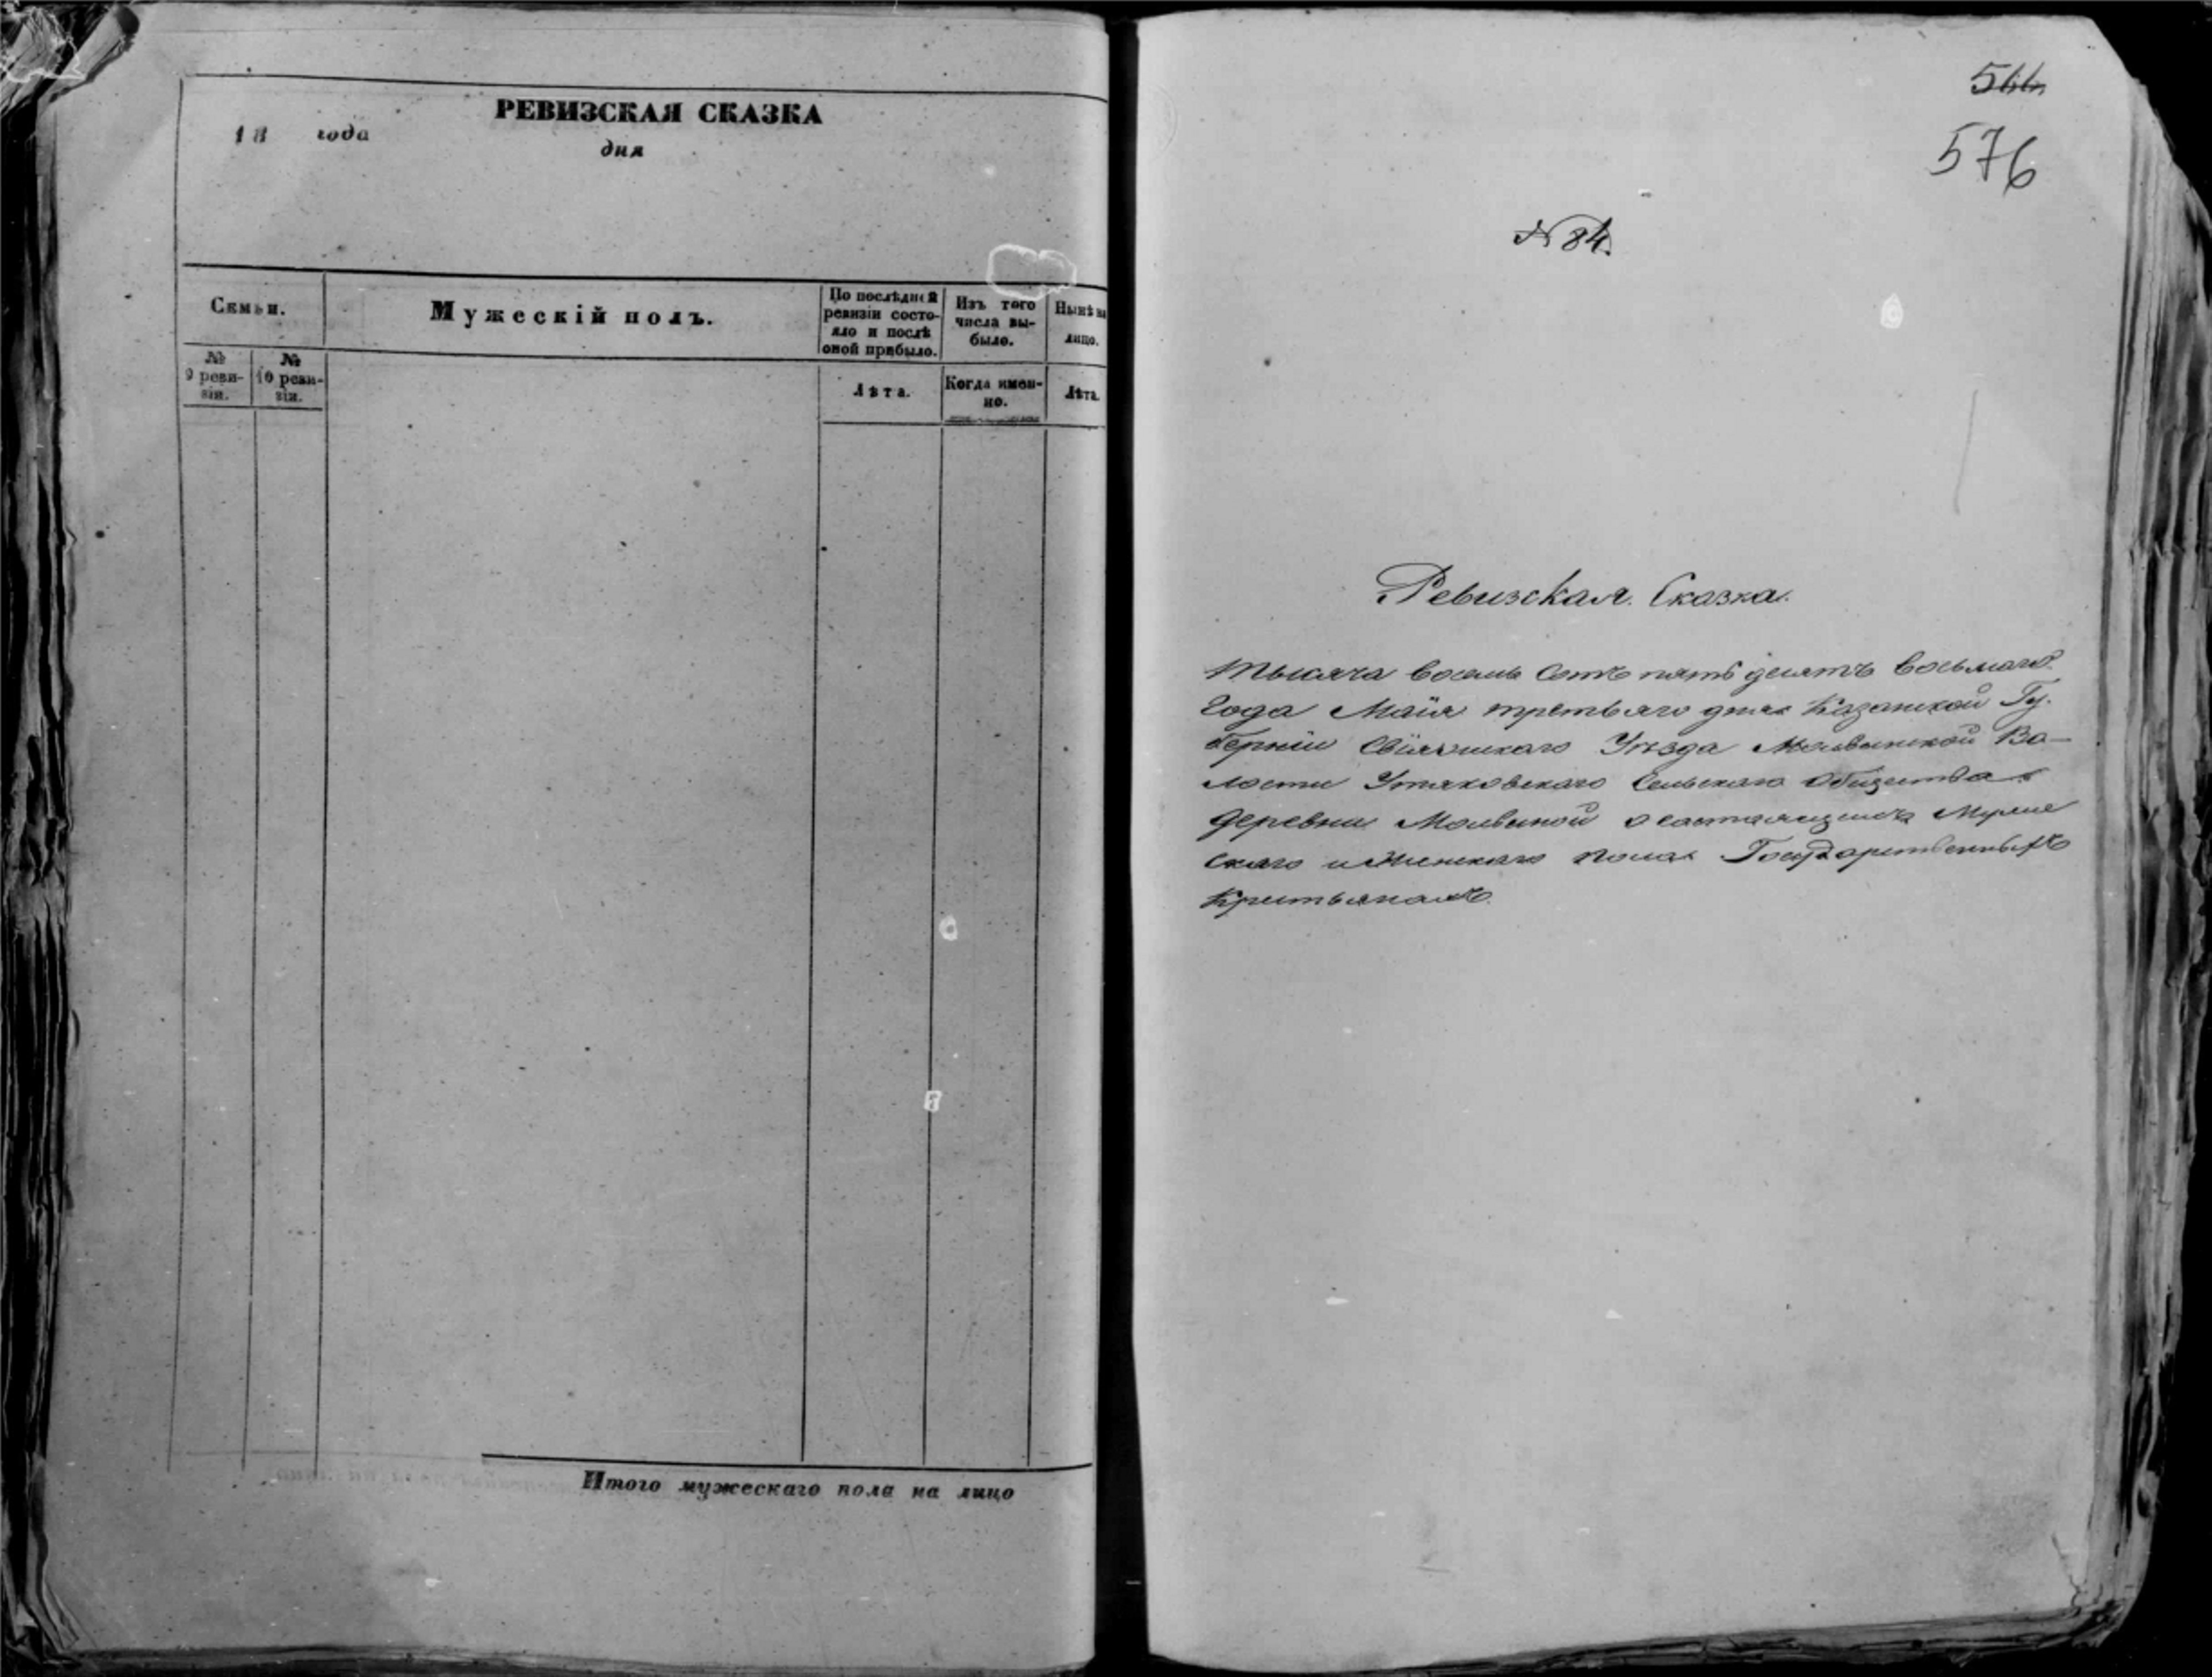 РЕВИЗСКАЯ СКАЗКА
18 года
дня
Семьи.
Мужескій полъ.
По послѣдней ревизіи состояло и послѣ оной прибыло.
Изъ того числа выбыло.
Нынѣ на лицо.
№ 9 ревизіи.
№ 10 ревизіи.
Лѣта.
Когда именно.
Лѣта.
Итого мужескаго пола на лицо
566
576
№ 84.
Ревизская Сказка.
Тысяча восемь сотъ пятьдесятъ восьмаго
года Маія третьяго дня Казанской Гу-
берніи Свіяжскаго Уѣзда Молвинской Во-
лости Утяковскаго Сельскаго Общества
деревни Молвиной о состоящихъ Муже
скаго и Женскаго пола Государственныхъ
Крестьянахъ